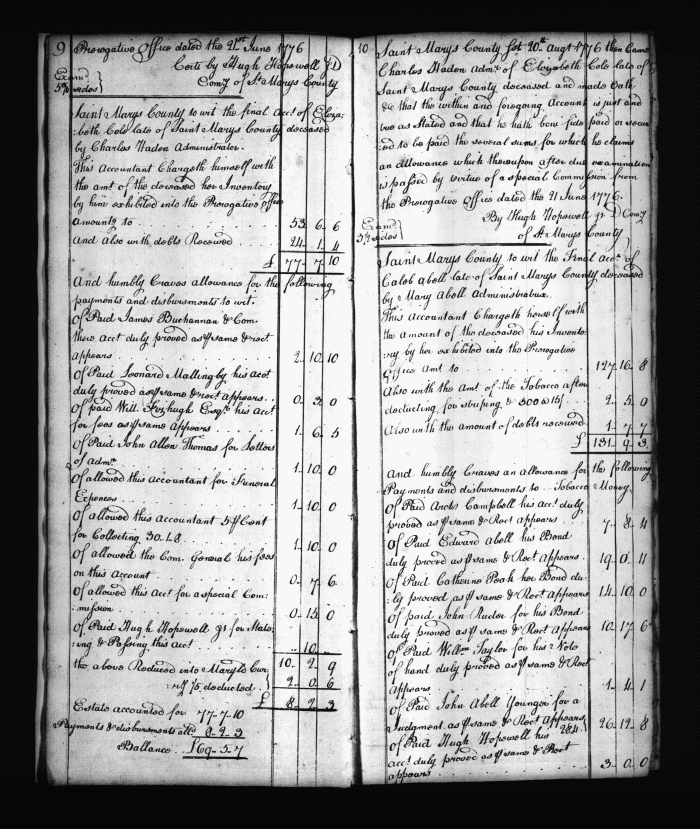 9 Prerogative Office dated the 21st June 1776
Certe by Hugh Hopewell Jr D
Comy of St Marys County
Exam:
5 sides
Saint Marys County to wit the final Acct of Eliza:
beth Cole late of Saint Marys County deceased
by Charles Hadon Administrator.
This Accountant Chargeth himself with
the amt of the deceased her Inventory
by him exhibited into the Prerogative Office
amountg to 53. 6. 6
And Also with debts Received 24. 1. 4
£ 77. 7. 10
And humbly Craves allowance for the following
payments and disbursments to wit.
Of Paid James Buchannan & Com:
there Acct duly proved as P same & rect
appears 2. 10. 10
Of Paid Leonard Matting by his Acct
duly proved as P same & rect appears. 0. 3. 0
Of paid Will Fitzhugh Esqr his Acct
for fees as P same Appears 1. 6. 5
Of Paid John Allen Thomas for Letters
of Admn 1. 10. 0
Of allowed this Accountant for Funeral
Expences 1. 10. 0
Of allowed this Accountant 5 P Cent
for Collecting 30. 1. 8 1. 10. 0
Of allowed the Com. General his fees
on this Account 0. 7. 6
Of allowed this Acct for a special Com:
mission 0. 15. 0
Of Paid Hugh Hopewell Jr for Stat:
ing & Passing this Acct .. 10 ..
the above Reduced into Maryld Cur: 10. 2. 9
deducted 2. 0. 6
£ 8. 2. 3
Estate accounted for 77. 7. 10
Payments & disbursments alld 8. 2. 3
Ballance £ 69. 5. 7
10 Saint Marys County Sst 20th Augt 1776 then Came
Charles Hadon Admr of Elizabeth Cole late of
Saint Marys County deceased and made Oath
& that the within and foregoing Account is just and
true as Stated and that he hath bona fide paid or secur
:ed to be paid the several sums for which he claims
an allowance which thereupon after due examination
is passed by virtue of a special Commission from
the Prerogative Office dated the 21 June 1776.
By Hugh Hopewell Jr D Comy
of St Marys County
Exam:
3 sides
Saint Marys County to wit the Final Acct of
Caleb Abell late of Saint Marys County deceased
by Mary Abell Administratrix.
This Accountant Chargeth herself with
the amount of the deceased his Invento:
ry by her exhibited into the Prerogative
Office Amt to 127. 16. 8
Also with the Amt of the Tobacco after
deducting for striping & 300 2. 5. 0
Also with the amount of debts received 1. 7. 7
£ 131. 9. 3
And humbly Craves an Allowance for the following
Payments and disbursments to Tobacco Money
Of Paid Campbell his acct duly
proved as P same & Rect appears 7. 8. 4
Of Paid Edward Abell his Bond
duly proved as P same & Rect Appears 19. 0. 11
Of Paid Catherine Peak her Bond du:
ly proved as P same & Rect Appears 14. 10. 0
Of paid John Rudor for his Bond
duly proved as P same & Rect Appears 10. 17. 6
Of Paid Willm Taylor for his Note
of hand duly proved as P same & Rect
Appears 1. 4. 1
Of Paid John Abell Younger for a
Judgment as P same & Rect Appears 26. 12. 8
Of Paid Hugh Hopewell his 284
acct duly proved as P same & Rect
appears 3. 0. 0